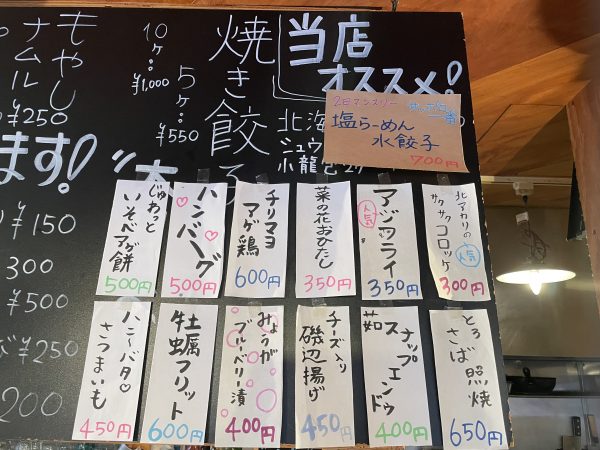 当店
オススメ!
2日マンスリー
塩らーめん
水餃子
700円
焼き餃子
10ヶ…
¥1,000
5ヶ…
¥550
もやし
ナムル
¥250
ます!
¥150
300
¥500
¥250
200
北海
シュウ
北アカリの
サクサクコロッケ
人気
300円
アジフライ
人気
350円
菜の花おひたし
350円
チリマヨ
マゲ鶏
600円
ハンバーグ
500円
じゅわっと
いそべアゲ餅
500円
とろ
さば照焼
650円
スナップエンドウ
茹
400円
チーズ入り
磯辺揚げ
450円
みょうが
ブルーベリー漬
400円
牡蠣フリット
600円
ハニ〜バタ♡
さつまいも
450円